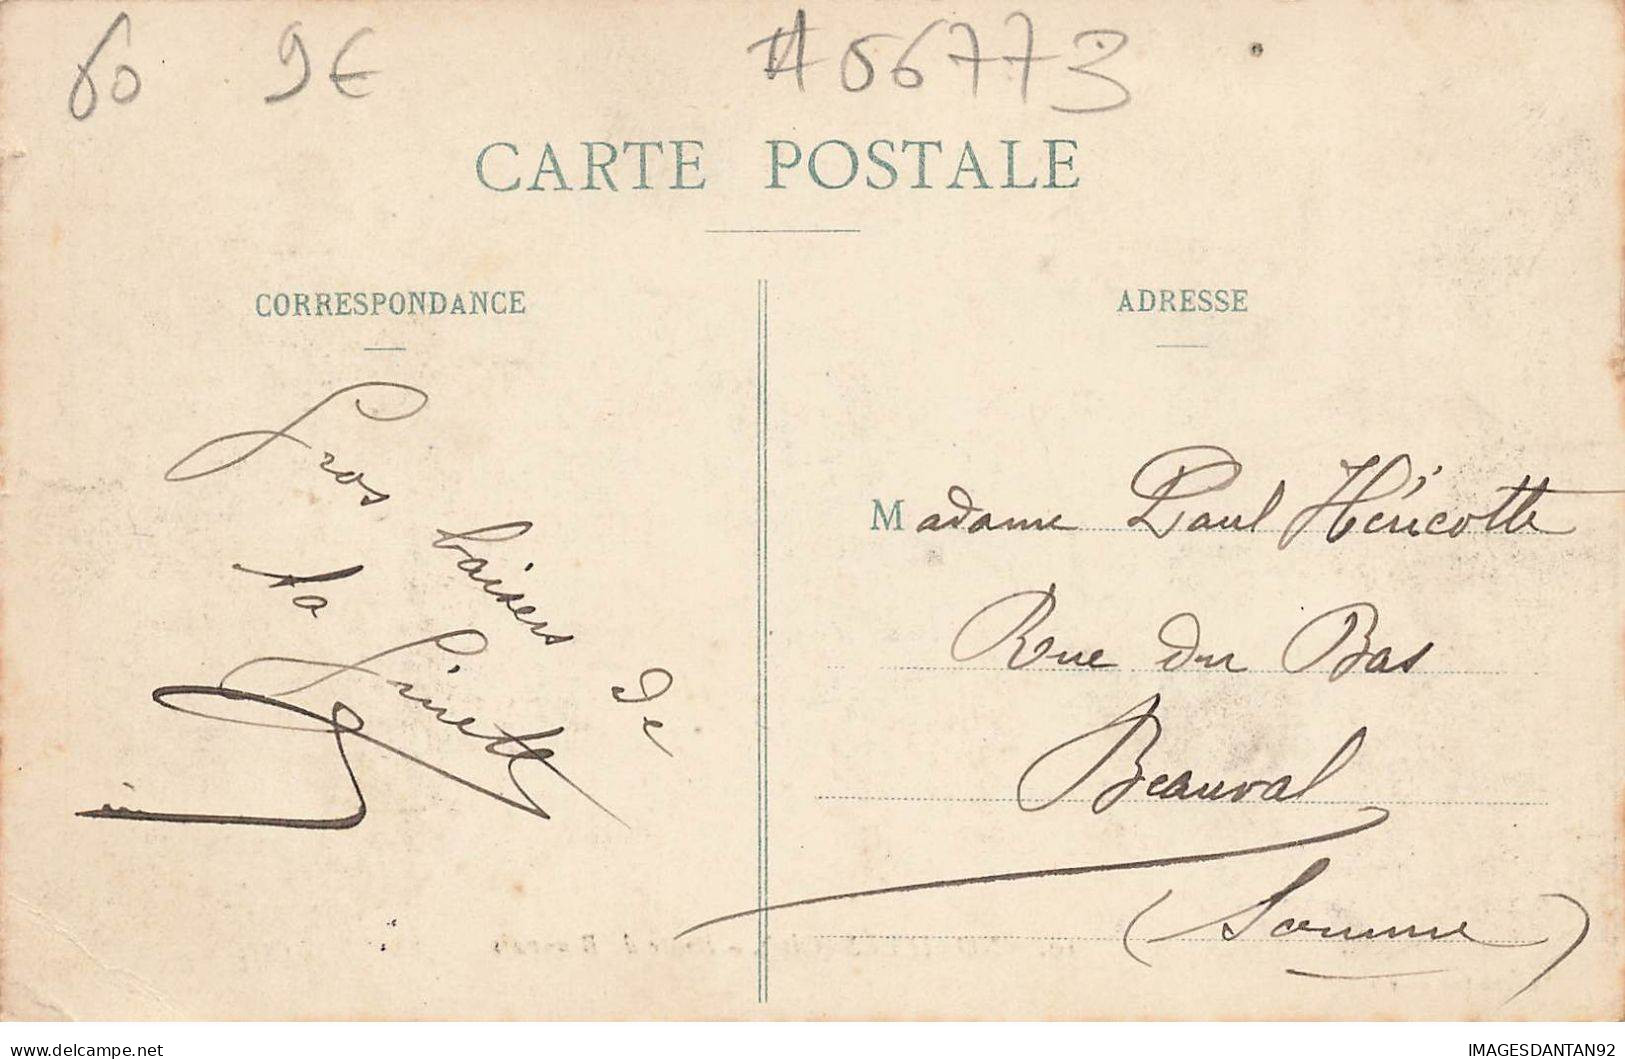 60 9€ #56773
CARTE POSTALE
CORRESPONDANCE
ADRESSE
Gros baisers de
ta Ginette
Madame Paul Héricotte
Rue du Bas
Beauval
(Somme)
IMAGESDANTAN92
delcampe.net